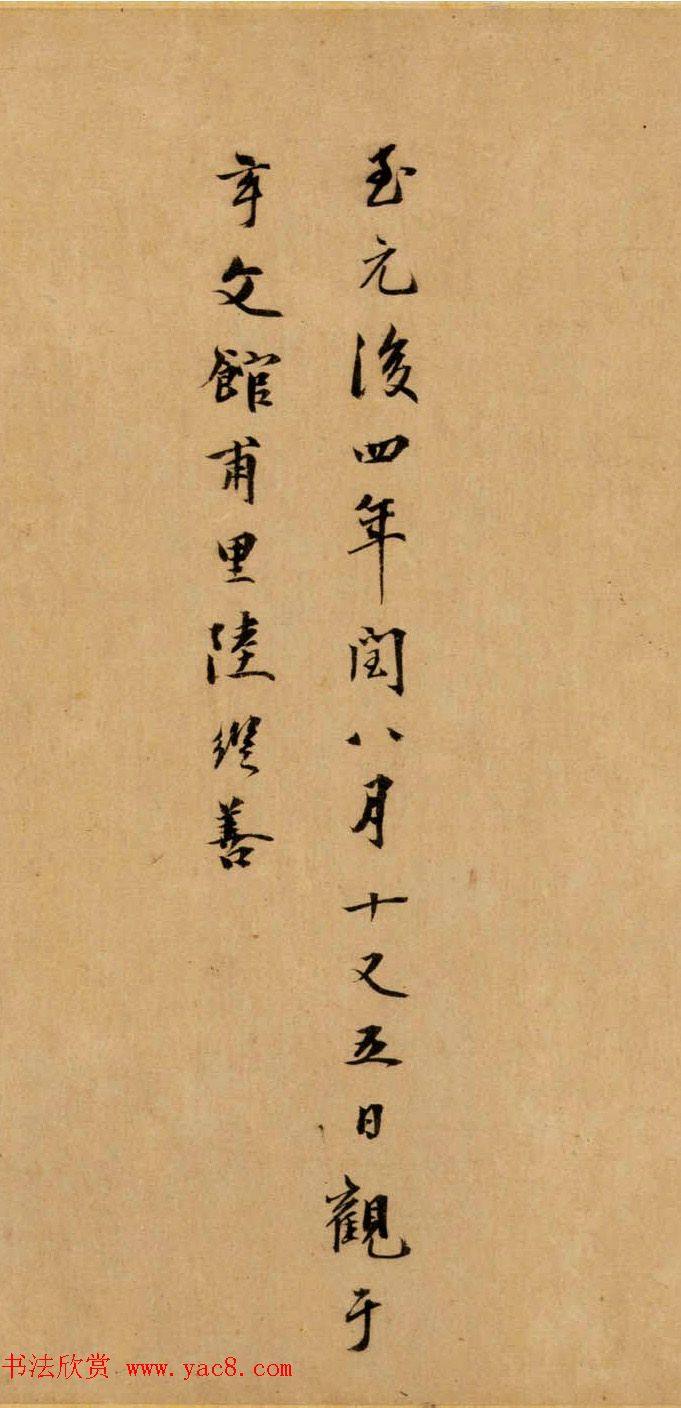 至元後四年閏八月十又五日觀于
宇文館甫里陸繼善
书法欣赏 www.yac8.com